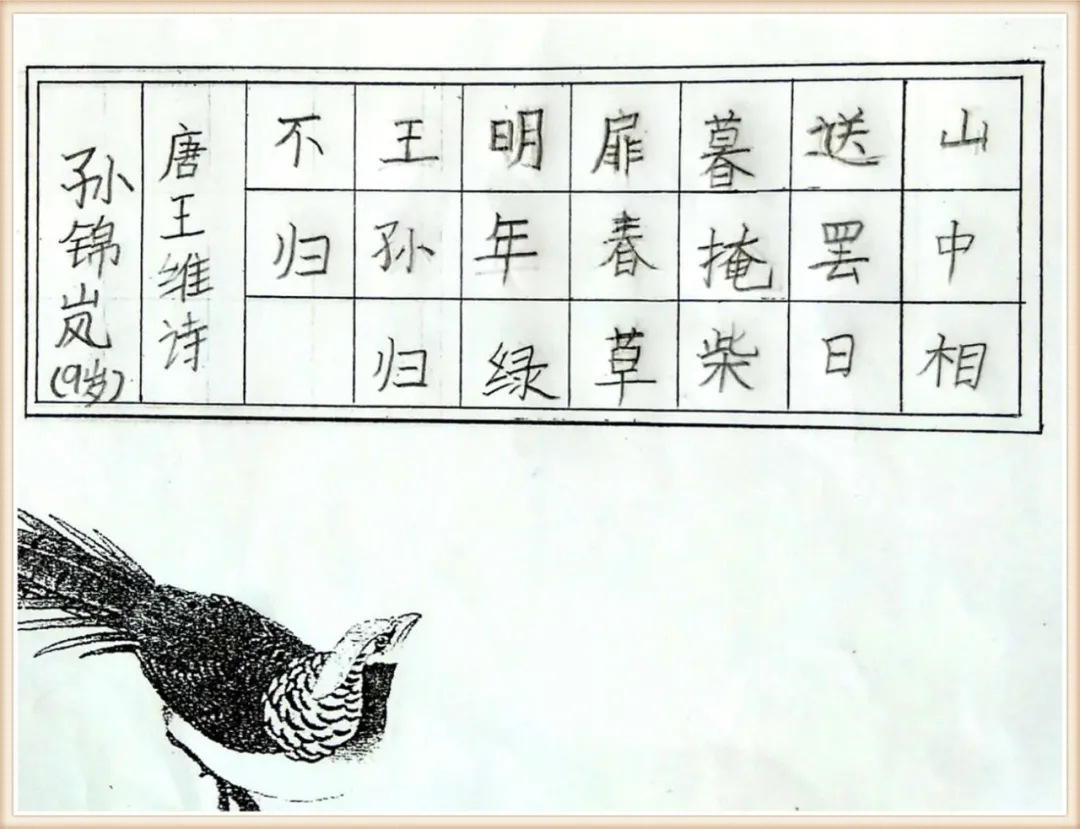 山中相
送罢日
暮掩柴
扉春草
明年绿
王孙归
不归
唐王维诗
孙锦岚
(9岁)